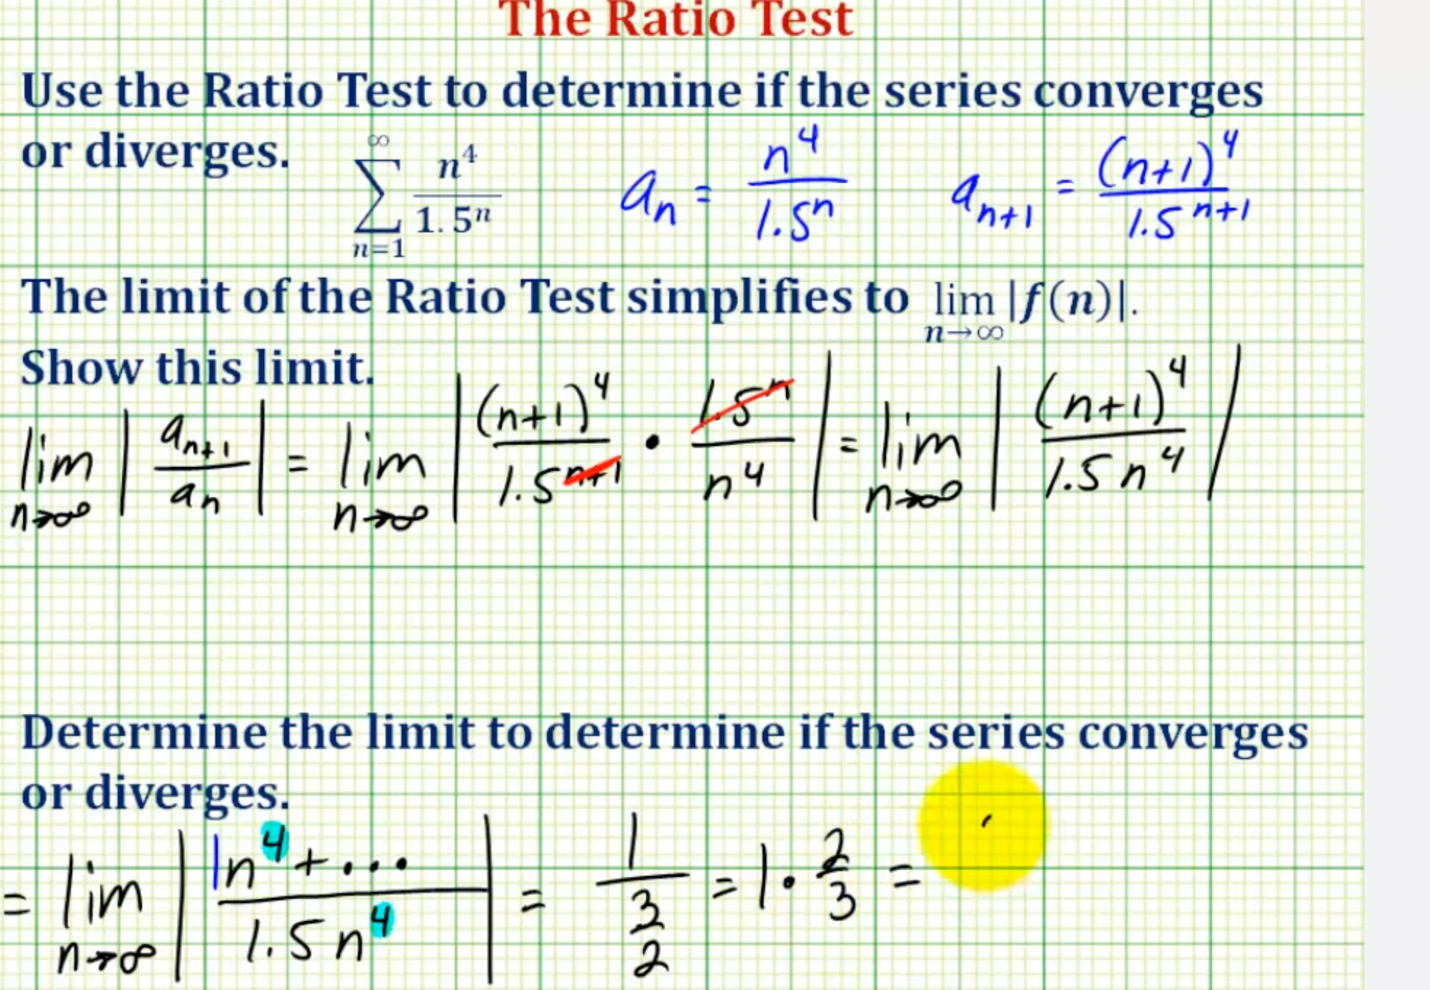 The Ratio Test
Use the Ratio Test to determine if the series converges
or diverges. ∞ ∑ n=1 n⁴/1.5ⁿ aₙ = n⁴/1.5ⁿ aₙ₊₁ = (n+1)⁴/1.5ⁿ⁺¹
The limit of the Ratio Test simplifies to lim n→∞ |f(n)|.
Show this limit.
lim n→∞ |aₙ₊₁/aₙ| = lim n→∞ |(n+1)⁴/1.5ⁿ⁺¹ · 1.5ⁿ/n⁴| = lim n→∞ |(n+1)⁴/1.5n⁴|
Determine the limit to determine if the series converges
or diverges.
= lim n→∞ |1n⁴+···/1.5n⁴| = 1/(3/2) = 1·2/3 =